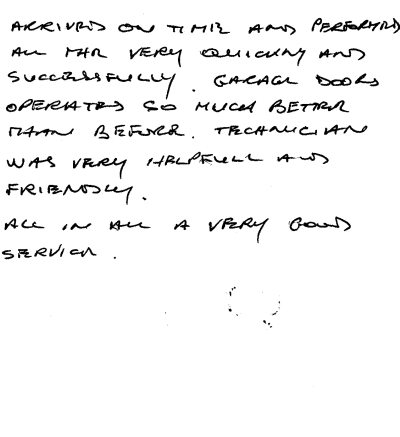 ARRIVED ON TIME AND PERFORMED
ALL THE VERY QUICKLY AND
SUCCESSFULLY. GARAGE DOORS
OPERATED SO MUCH BETTER
THAN BEFORE. TECHNICIAN
WAS VERY HELPFULL AND
FRIENDLY.
ALL IN ALL A VERY GOOD
SERVICE.